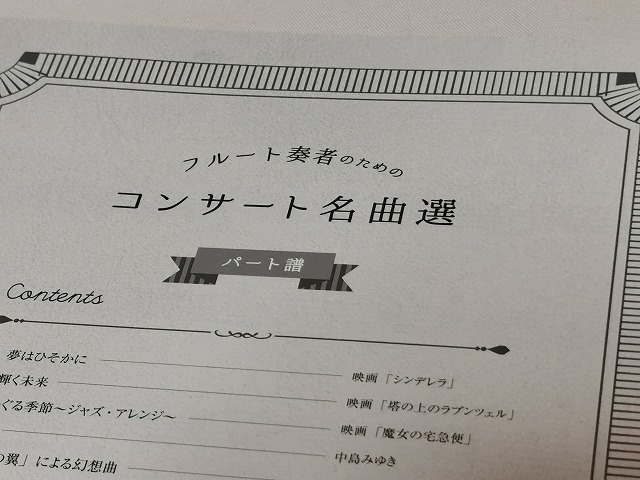 フルート奏者のための
コンサート名曲選
パート譜
Contents
夢はひそかに 映画「シンデレラ」
輝く未来 映画「塔の上のラプンツェル」
ぐる季節〜ジャズ・アレンジ〜 映画「魔女の宅急便」
中島みゆき
の翼」による幻想曲